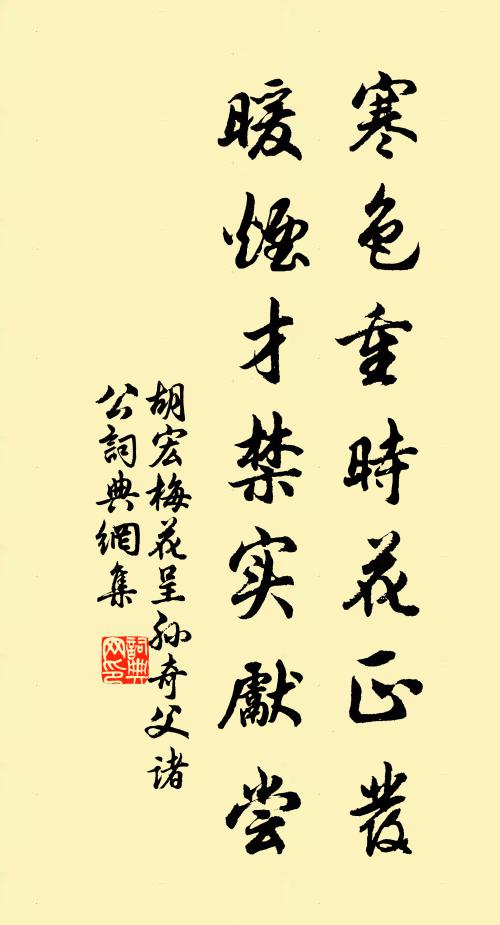 寒色重時花正發
暖煙才禁实獻尝
胡宏梅花呈孙奇父诸
公詞典網集
詞典
网印